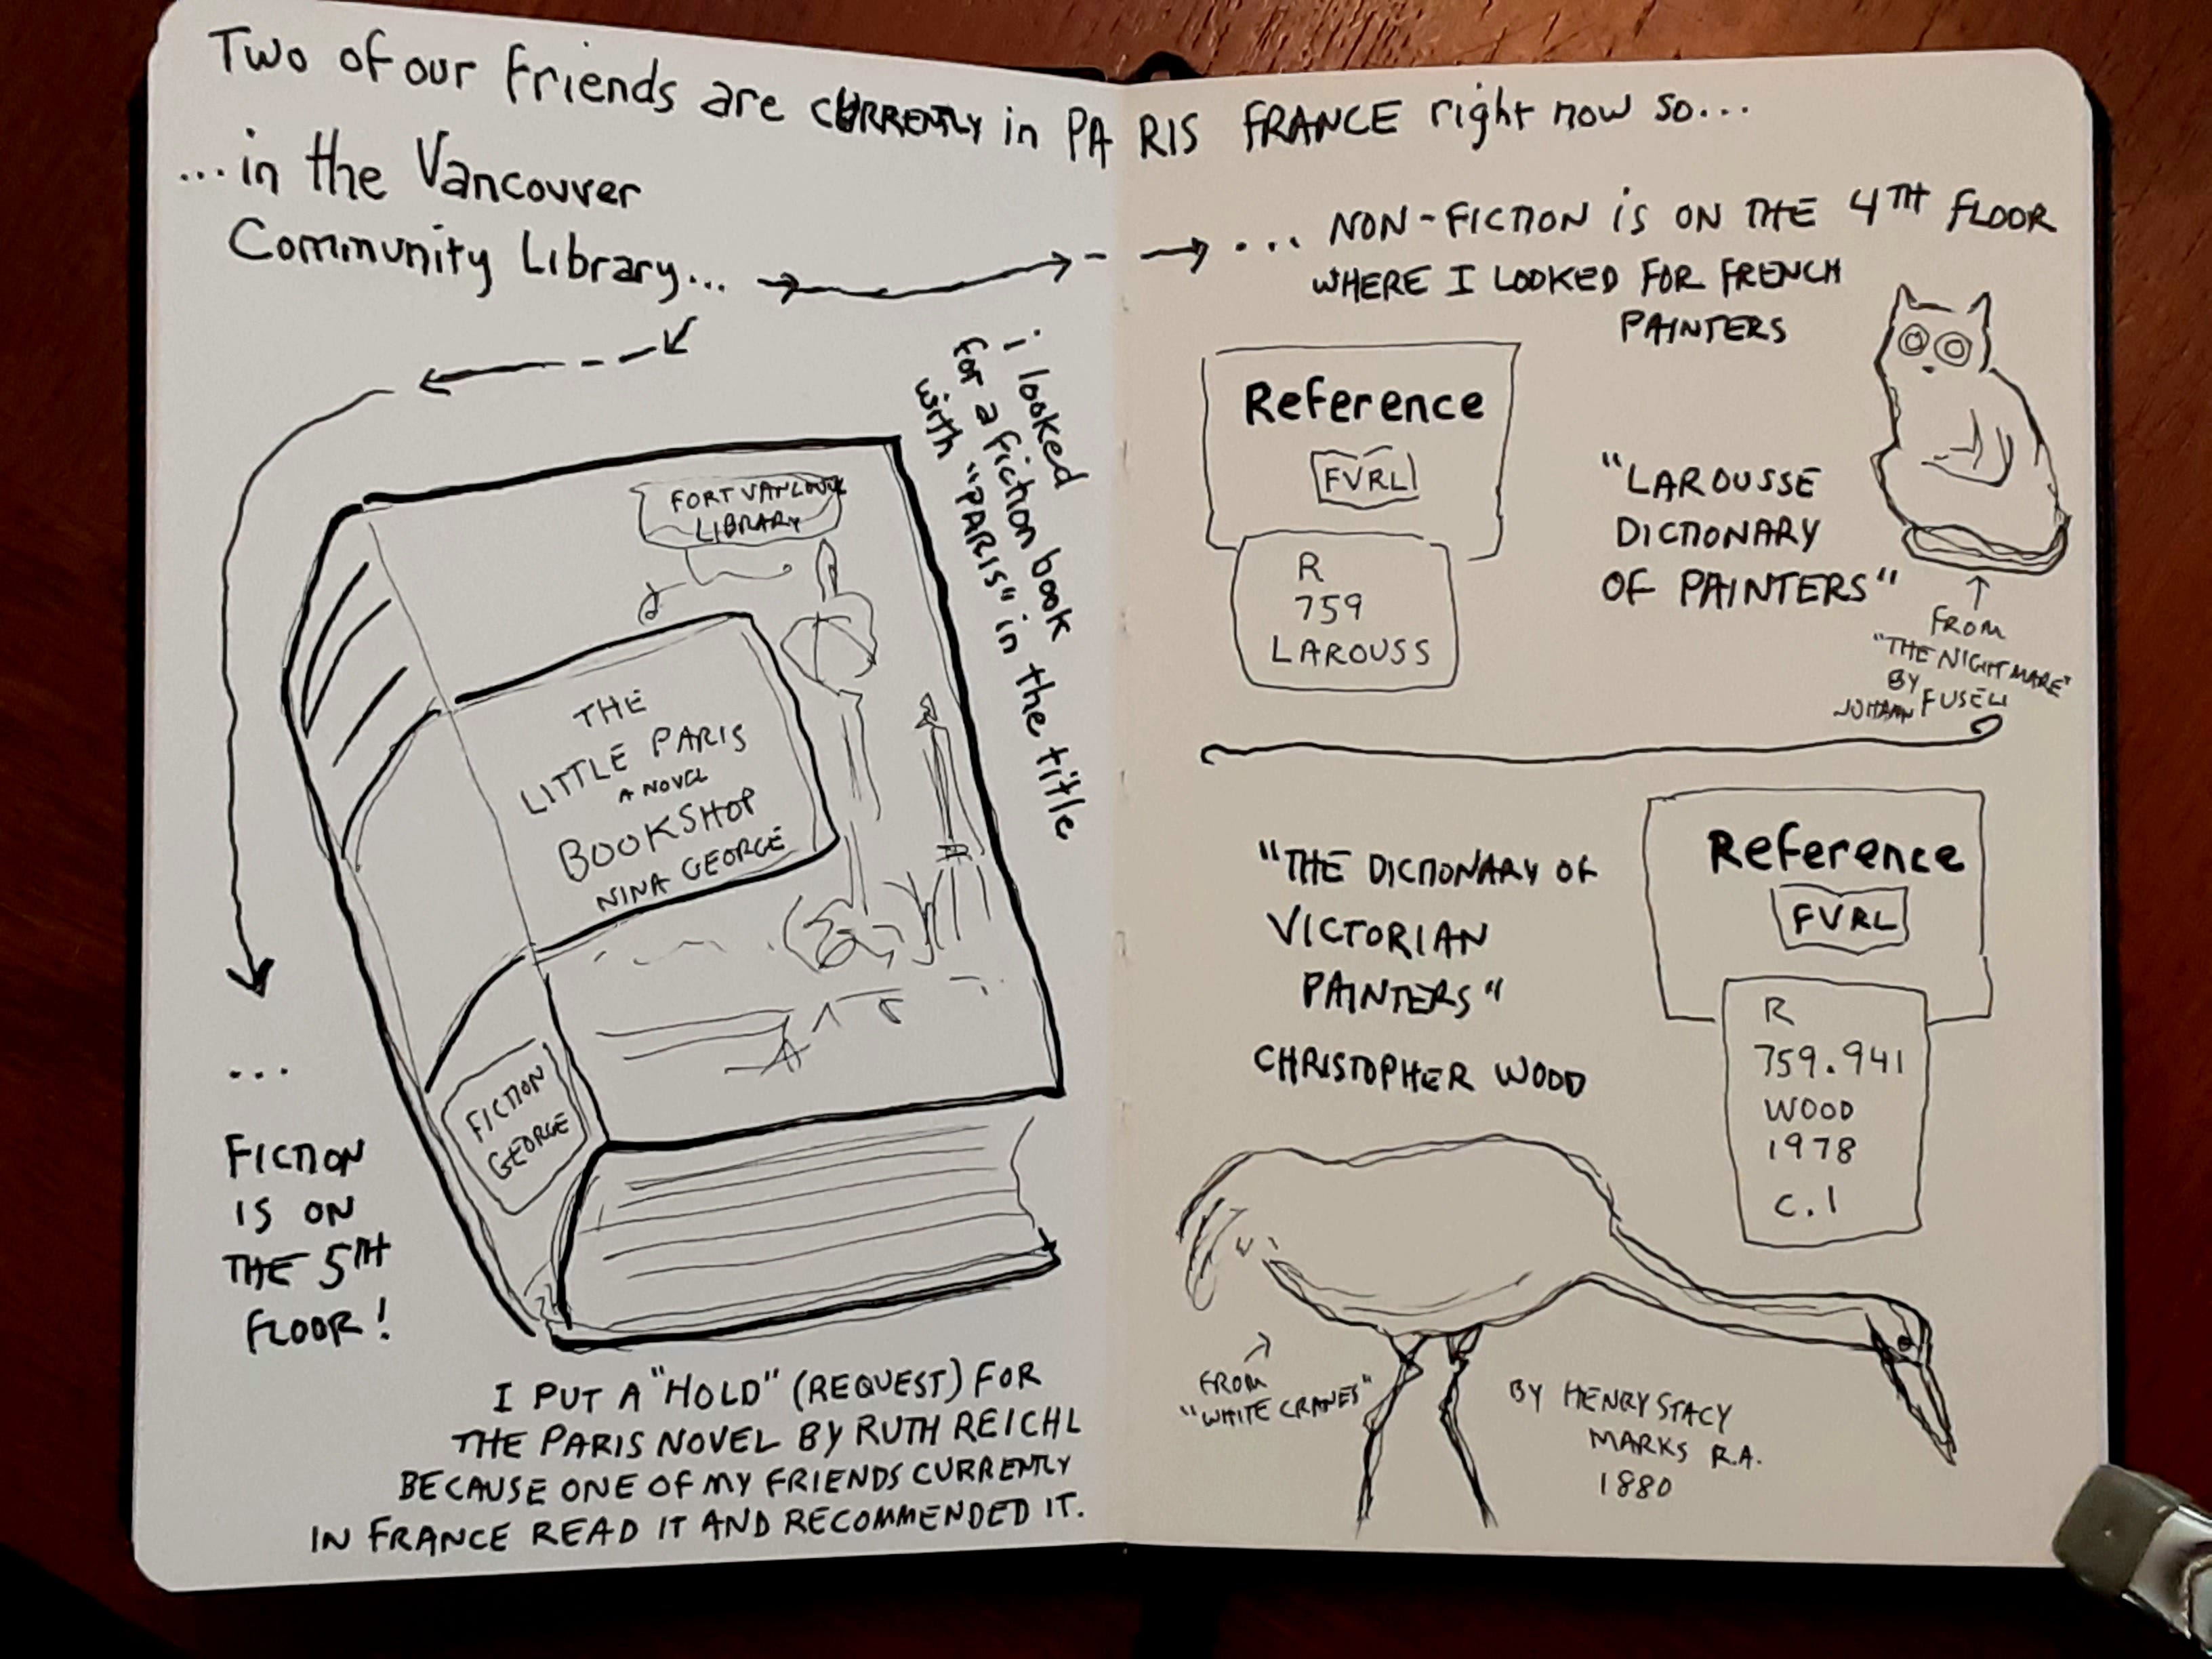 Two of our friends are CURRENTLY in PARIS FRANCE right now so...
...in the Vancouver
Community Library...
i looked
for a fiction book
with "PARIS" in the title
FORT VANCOUVER
LIBRARY
THE
LITTLE PARIS
A NOVEL
BOOKSHOP
NINA GEORGE
FICTION
GEORGE
...
FICTION
IS ON
THE 5TH
FLOOR!
I PUT A "HOLD" (REQUEST) FOR
THE PARIS NOVEL BY RUTH REICHL
BECAUSE ONE OF MY FRIENDS CURRENTLY
IN FRANCE READ IT AND RECOMMENDED IT.
... NON-FICTION iS ON THE 4TH FLOOR
WHERE I LOOKED FOR FRENCH
PAINTERS
Reference
FVRL
R
759
LAROUSS
"LAROUSSE
DICTIONARY
OF PAINTERS"
FROM
"THE NIGHTMARE"
BY
JOHANN FUSELI
"THE DICTIONARY OF
VICTORIAN
PAINTERS"
CHRISTOPHER WOOD
Reference
FVRL
R
759.941
WOOD
1978
C.1
FROM
"WHITE CRANES"
BY HENRY STACY
MARKS R.A.
1880